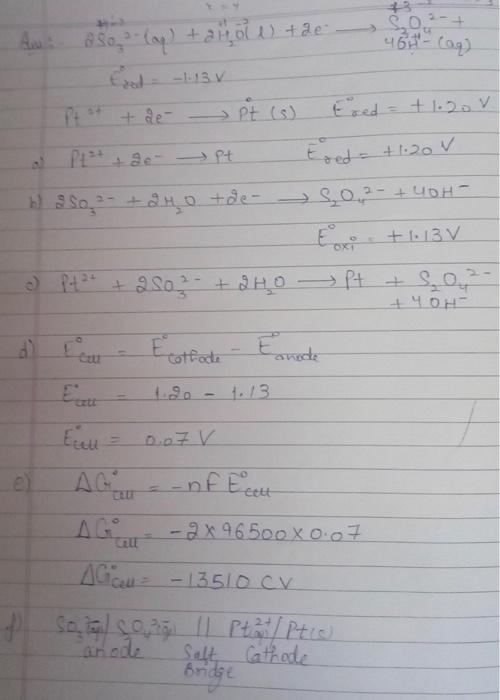 x = 4
Ans: 2SO₃²⁻(aq) + 2H₂O(l) + 2e⁻ ⟶ S₂O₄²⁻ +
4OH⁻ (aq)
E°red = -1.13 V
Pt²⁺ + 2e⁻ ⟶ Pt (s) E°red = +1.20 V
a) Pt²⁺ + 2e⁻ ⟶ Pt E°red = +1.20 V
b) 2SO₃²⁻ + 2H₂O + 2e⁻ ⟶ S₂O₄²⁻ + 4OH⁻
E°oxi = +1.13V
c) Pt²⁺ + 2SO₃²⁻ + 2H₂O ⟶ Pt + S₂O₄²⁻
+ 4OH⁻
d) E°cell = E°cathode - E°anode
E°cell = 1.20 - 1.13
E°cell = 0.07 V
e) ΔG°cell = -nF E°cell
ΔG°cell = -2×96500×0.07
ΔG°cell = -13510 CV
f) || Pt²⁺(aq)/Pt(s)
anode Salt Cathode
Bridge